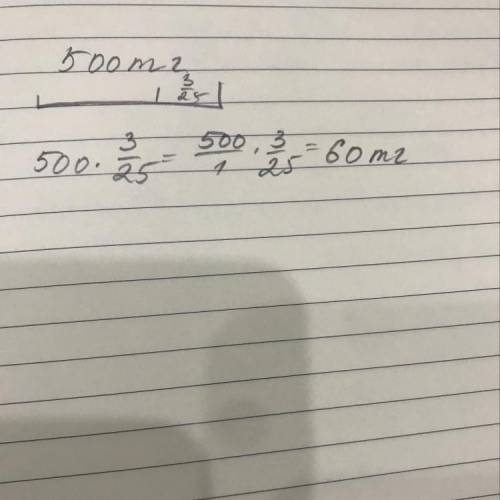 500 тг
3/25
500 · 3/25 = 500/1 · 3/25 = 60 тг